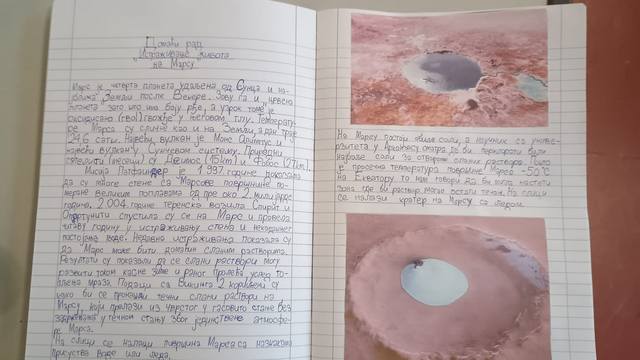 Домаћи рад
Истраживање живота
на Марсу
Марс је четврта планета удаљена од Сунца и нај
ближа Земљи после Венере. Зову га и црвена
планета зато што има боју рђе, а узрок томе је
оксидисано гвожђе у његовом тлу. Температу-
ре Марса су сличне као и на Земљи, а дан траје
24,6 сати. Највећи вулкан је Монс Олимпус и
највећи вулкан у Сунчевом систему. Природни
сателити (месеци) су Деимос (15km) и Фобос (27km).
Мисија Патфајндер је 1997. године показала
да су многе стене са Марсове површине по-
меране великим поплавама од пре око 2. милијарде
година. 2004. године теренска возила Спирит и
Опортунити спустила су се на Марс и провела
читаву годину у истраживању стена и некадашњег
постојања воде. Недавна истраживања показала су
да Марс може бити домаћин сланим растворима.
Резултати су показали да се слани раствори могу
развити током касне зиме и раног пролећа услед то-
пљења мраза. Подаци са Викинга 2 коришћени су
како би се пронашли течни слани раствори на
Марсу, који прелази из чврстог у гасовито стање без
задржавања у течном стању због јединствене атмосфе-
ре Марса.
На слици се налази површина Марса са назнакама
присуства воде или леда.
На Марсу постоји обиље соли, а научник са униве-
рзитета у Аризони сматра да би перхлорати били
најбоље соли за стварање сланих раствора. Пошто
је просечна температура површине Марса -50°C
на Екватору то нам говори да би могла настати
зона где би раствор могао остати течан. На слици
се налази кратер на Марсу са ледом.